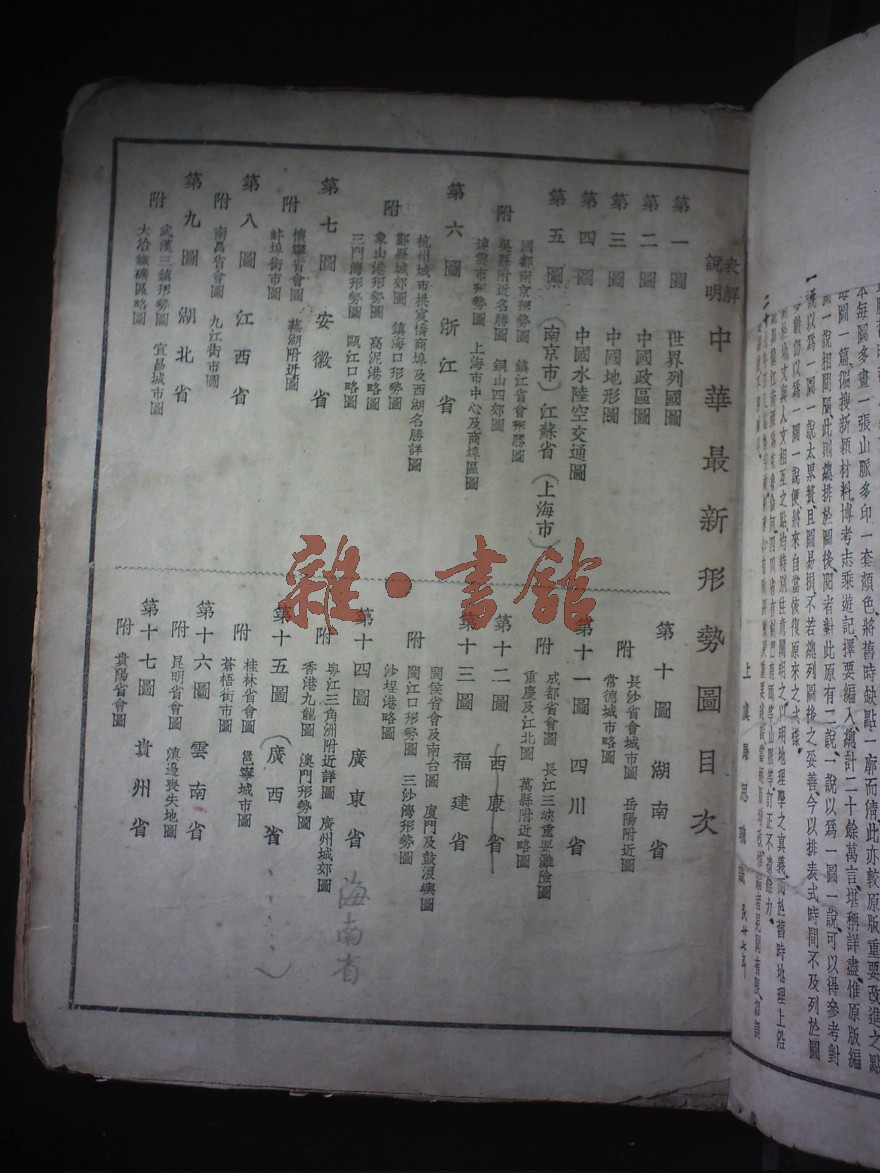 表解說明 中華最新形勢圖目次
第一圖 世界列國圖
第二圖 中國政區圖
第三圖 中國地形圖
第四圖 中國水陸空交通圖
第五圖 (南京市)江蘇省(上海市)
國都南京形勢圖 鎮江省會形勝圖
附 吳縣附近名勝圖 銅山四郊圖
連雲市形勢圖 上海市中心及商埠區圖
第六圖 浙江省
杭州城市拱宸橋商埠及西湖名勝詳圖
附 鄞縣城郊圖 鎮海口形勢圖
象山港形勢圖 高泥港略圖
三門灣形勢圖 甌江口略圖
第七圖 安徽省
附 懷寧省會圖 蕪湖附近圖
蚌埠街市圖
第八圖 江西省
附 南昌省會圖 九江街市圖
第九圖 湖北省
附 武漢三鎮形勢圖 宜昌城市圖
大冶鐵礦區略圖
第十圖 湖南省
附 長沙省會城市圖 岳陽附近圖
常德城市略圖
第十一圖 四川省
附 成都省會圖 長江三峽重要灘險圖
重慶及江北圖 萬縣附近略圖
第十二圖 西康省
第十三圖 福建省
附 閩侯省會及南台圖 廈門及鼓浪嶼圖
閩江口形勢圖 三沙灣形勢圖
沙埕港略圖
第十四圖 廣東省 海南省
附 粵江三角洲附近詳圖 廣州城郊圖
香港九龍圖 澳門形勢圖
第十五圖 (廣西省 )
附 桂林省會圖 邕寧城市圖
蒼梧街市圖
第十六圖 雲南省
附 昆明省會圖 滇邊喪失地圖
第十七圖 貴州省
附 貴陽省會圖
雜·書館
本每圖多畫一張山脈多印一套顏色,將舊時缺點一廓而淸,此亦較原版重要改進之點
每圖一篇,搜新穎材料,博考志乘遊記,擇要編入,總計二十餘萬言,堪稱詳盡,惟原版編
圖一說相間隔,此則總排於圖後,閱者對此原有二說,一說以爲一圖一說,可以得參考對
一說以爲一圖一說太累贅,且圖易損,不若總列圖後之妥善,今以排表式時間不及列於圖